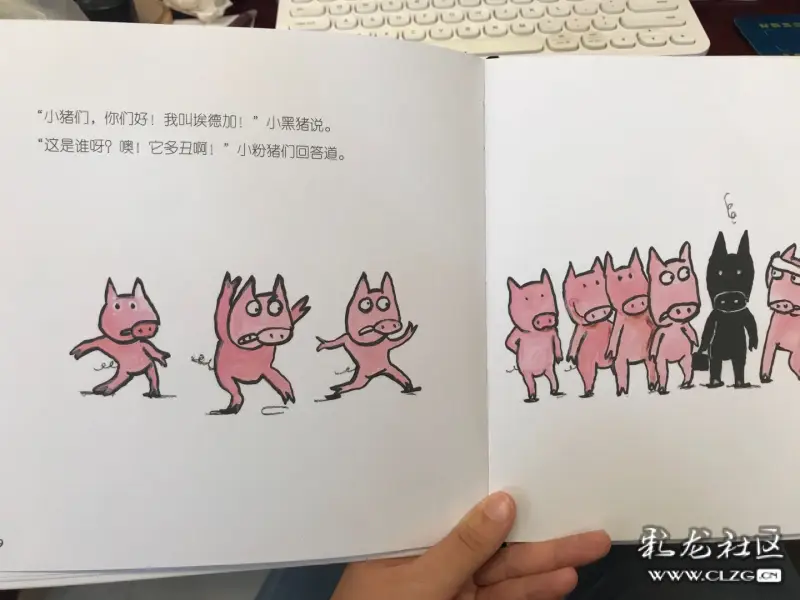 “小猪们，你们好！我叫埃德加！”小黑猪说。
“这是谁呀？噢！它多丑啊！”小粉猪们回答道。
9
彩龙社区
WWW.CLZG.CN